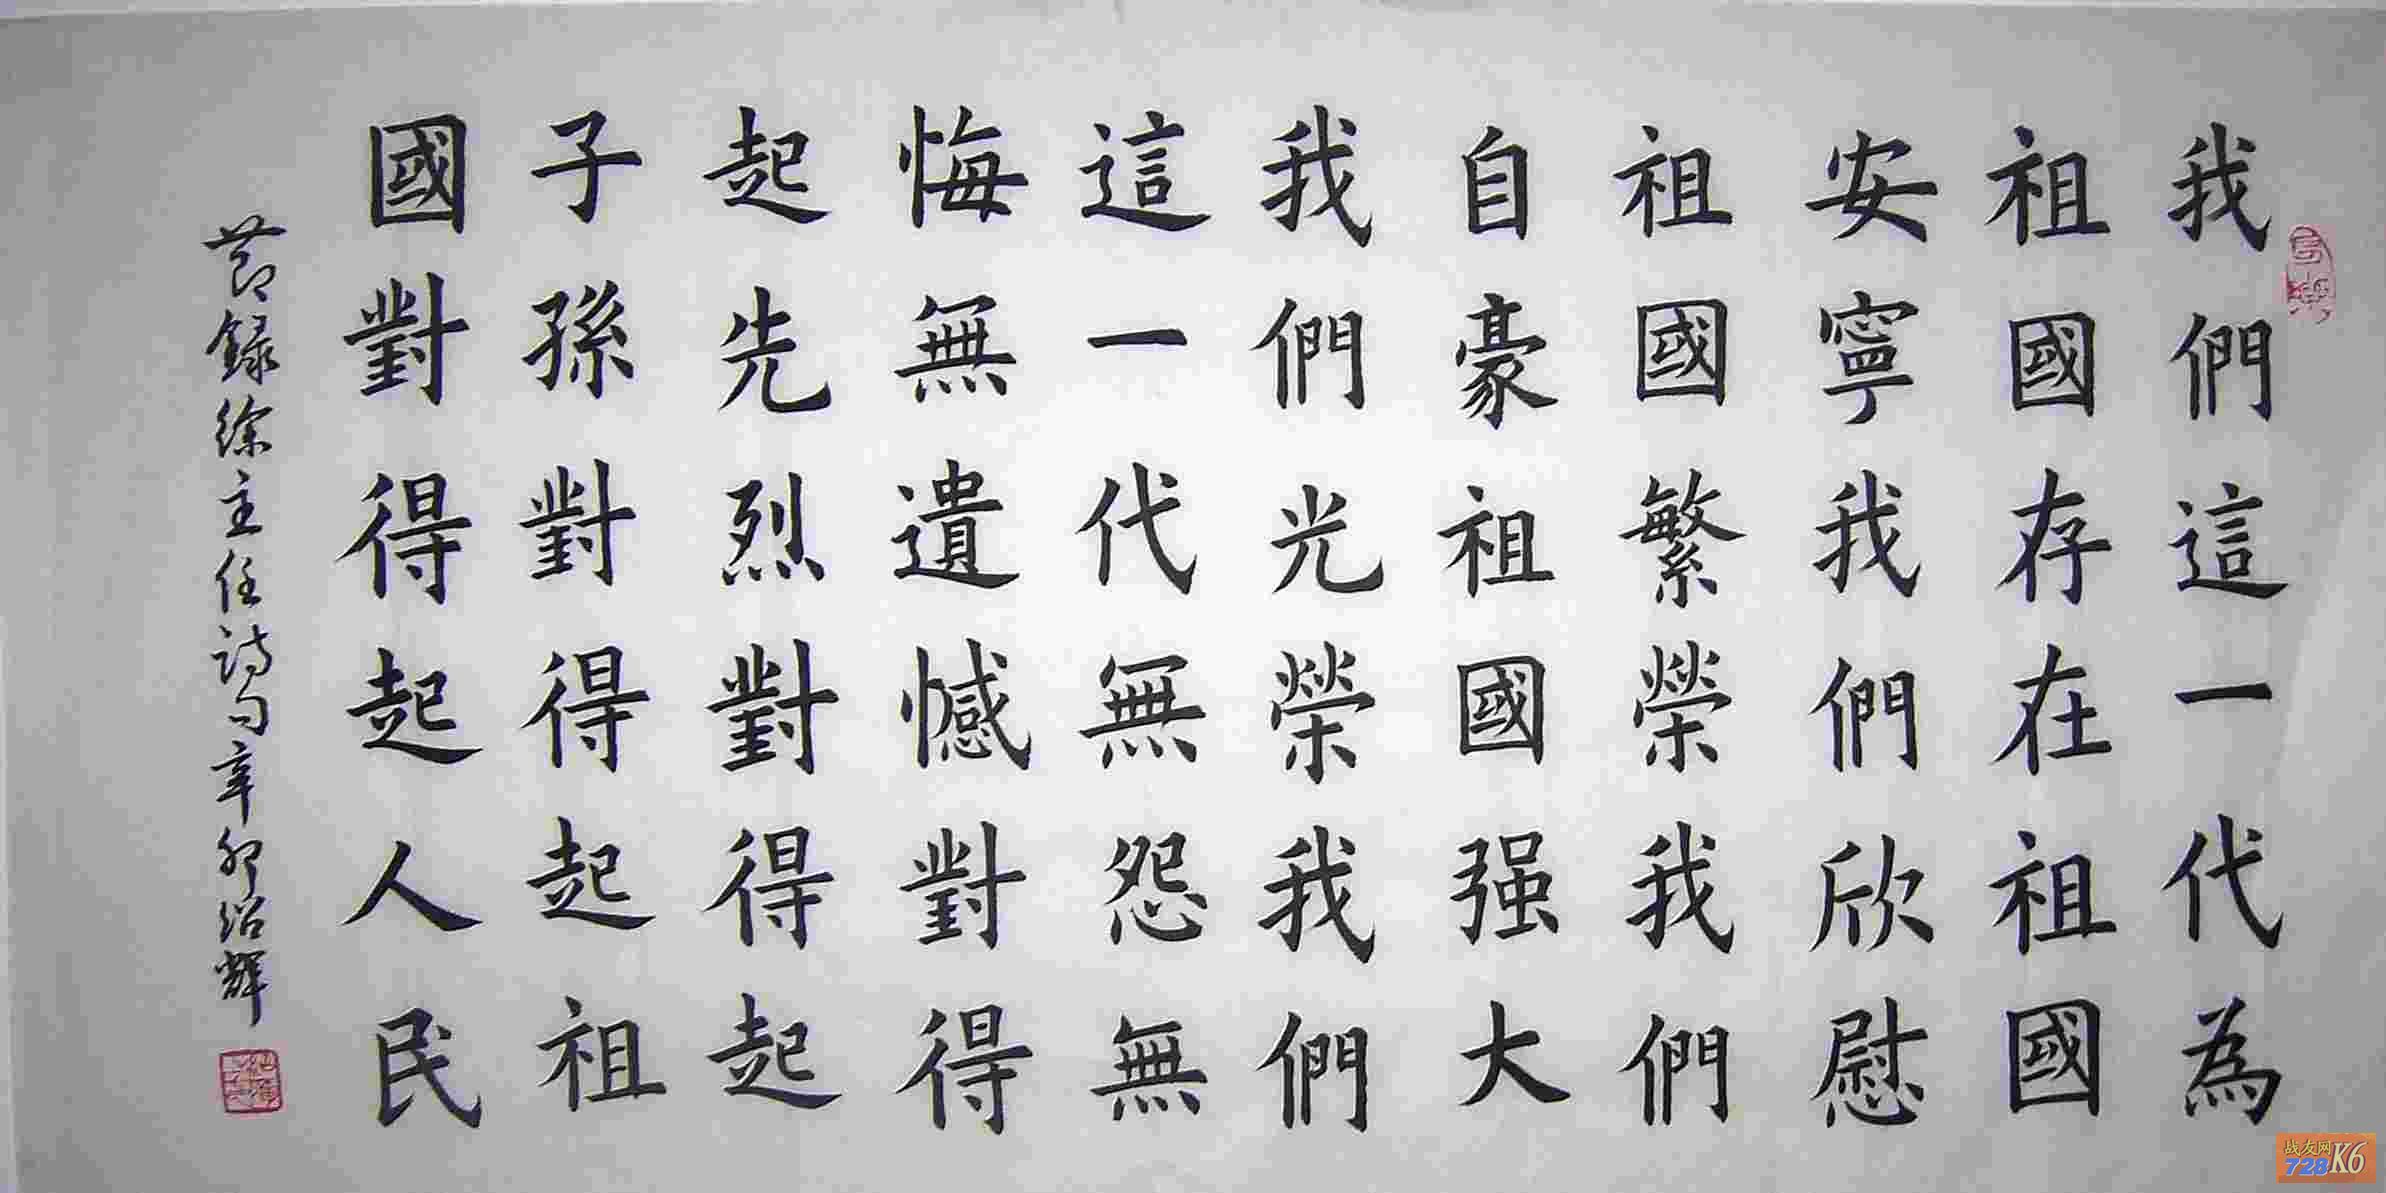 我們這一代為
祖國存在祖國
安寧我們欣慰
祖國繁榮我們
自豪祖國强大
我們光榮我們
這一代無怨無
悔無遺憾對得
起先烈對得起
子孫對得起祖
國對得起人民
節録徐主任詩句辛卯绍輝
战友网
728K6